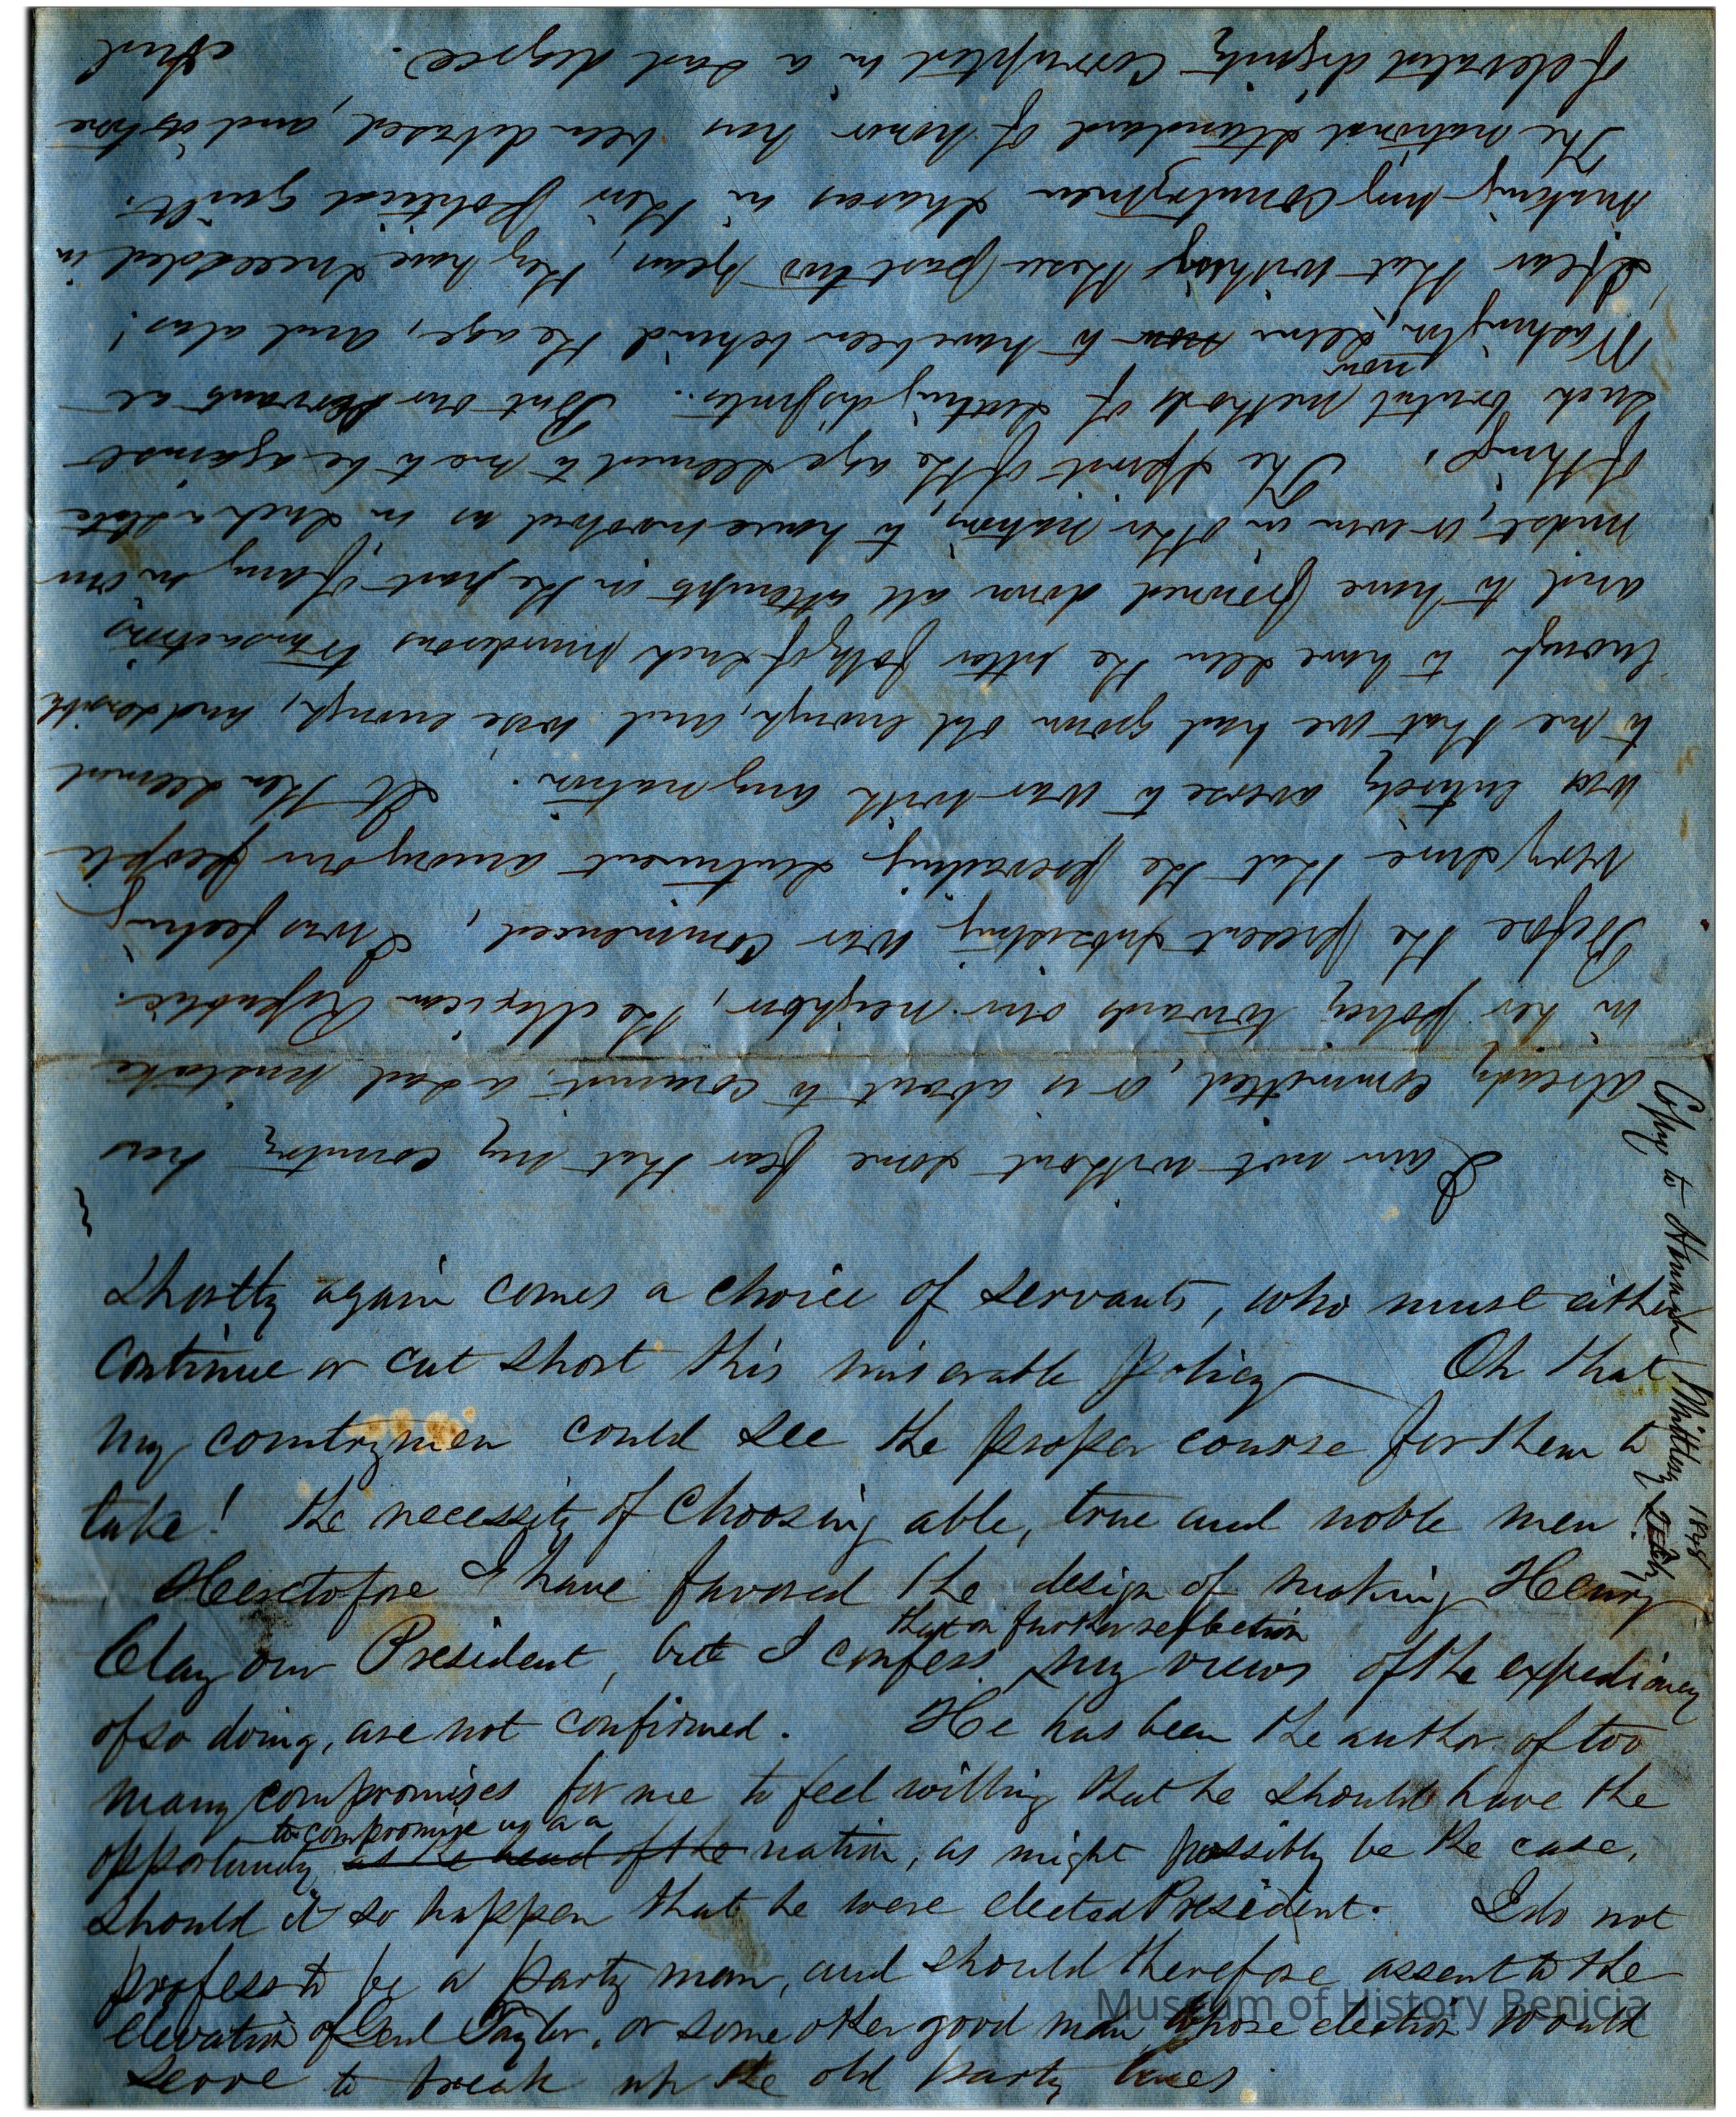 I am not without some fear that my country has
already committed, or is about to commit, a sad mistake
in her policy towards our neighbor, the Mexican Republic.
Before the present subsisting war commenced, I was feeling
very sure that the prevailing sentiment among our people
was entirely averse to war with any nation. It then seemed
to me that we had grown old enough, and wise enough, and sensible
enough to have seen the utter folly of such murderous transactions,
and to have frowned down all attempts on the part of any in our
midst, or even in other nations, to have involved us in such a state
of things. The spirit of the age seemed to me to be against
such brutal methods of settling disputs. But our servants at
now
Washington, seem now to have been behind the age, and alas!
I fear that within these past two years, they have succeeded in
making my countrymen sharers in their political guilt.
The national standard of honor has been debased, and its tone
of elevated dignity corrupted in a sad degree. And
shortly again comes a choice of servants, who must either
continue or cut short this miserable policy — Oh that
my countrymen could see the proper course for them to
take! the necessity of choosing able, true and noble men.
Heretofore I have favored the design of making Henry
that on further reflection
Clay our President, but I confess my views of the expediency
of so doing, are not confirmed. He has been the author of too
many compromises for me to feel willing that he should have the
to compromise us as a
opportunity as the head of the nation, as might possibly be the case,
should it so happen that he were elected President. I do not
profess to be a party man, and should therefore assent to the
elevation of Genl Taylor, or some other good man, whose election would
serve to break up the old party lines.
Copy to Hannah Whittlesey
1848
Museum of History Benicia